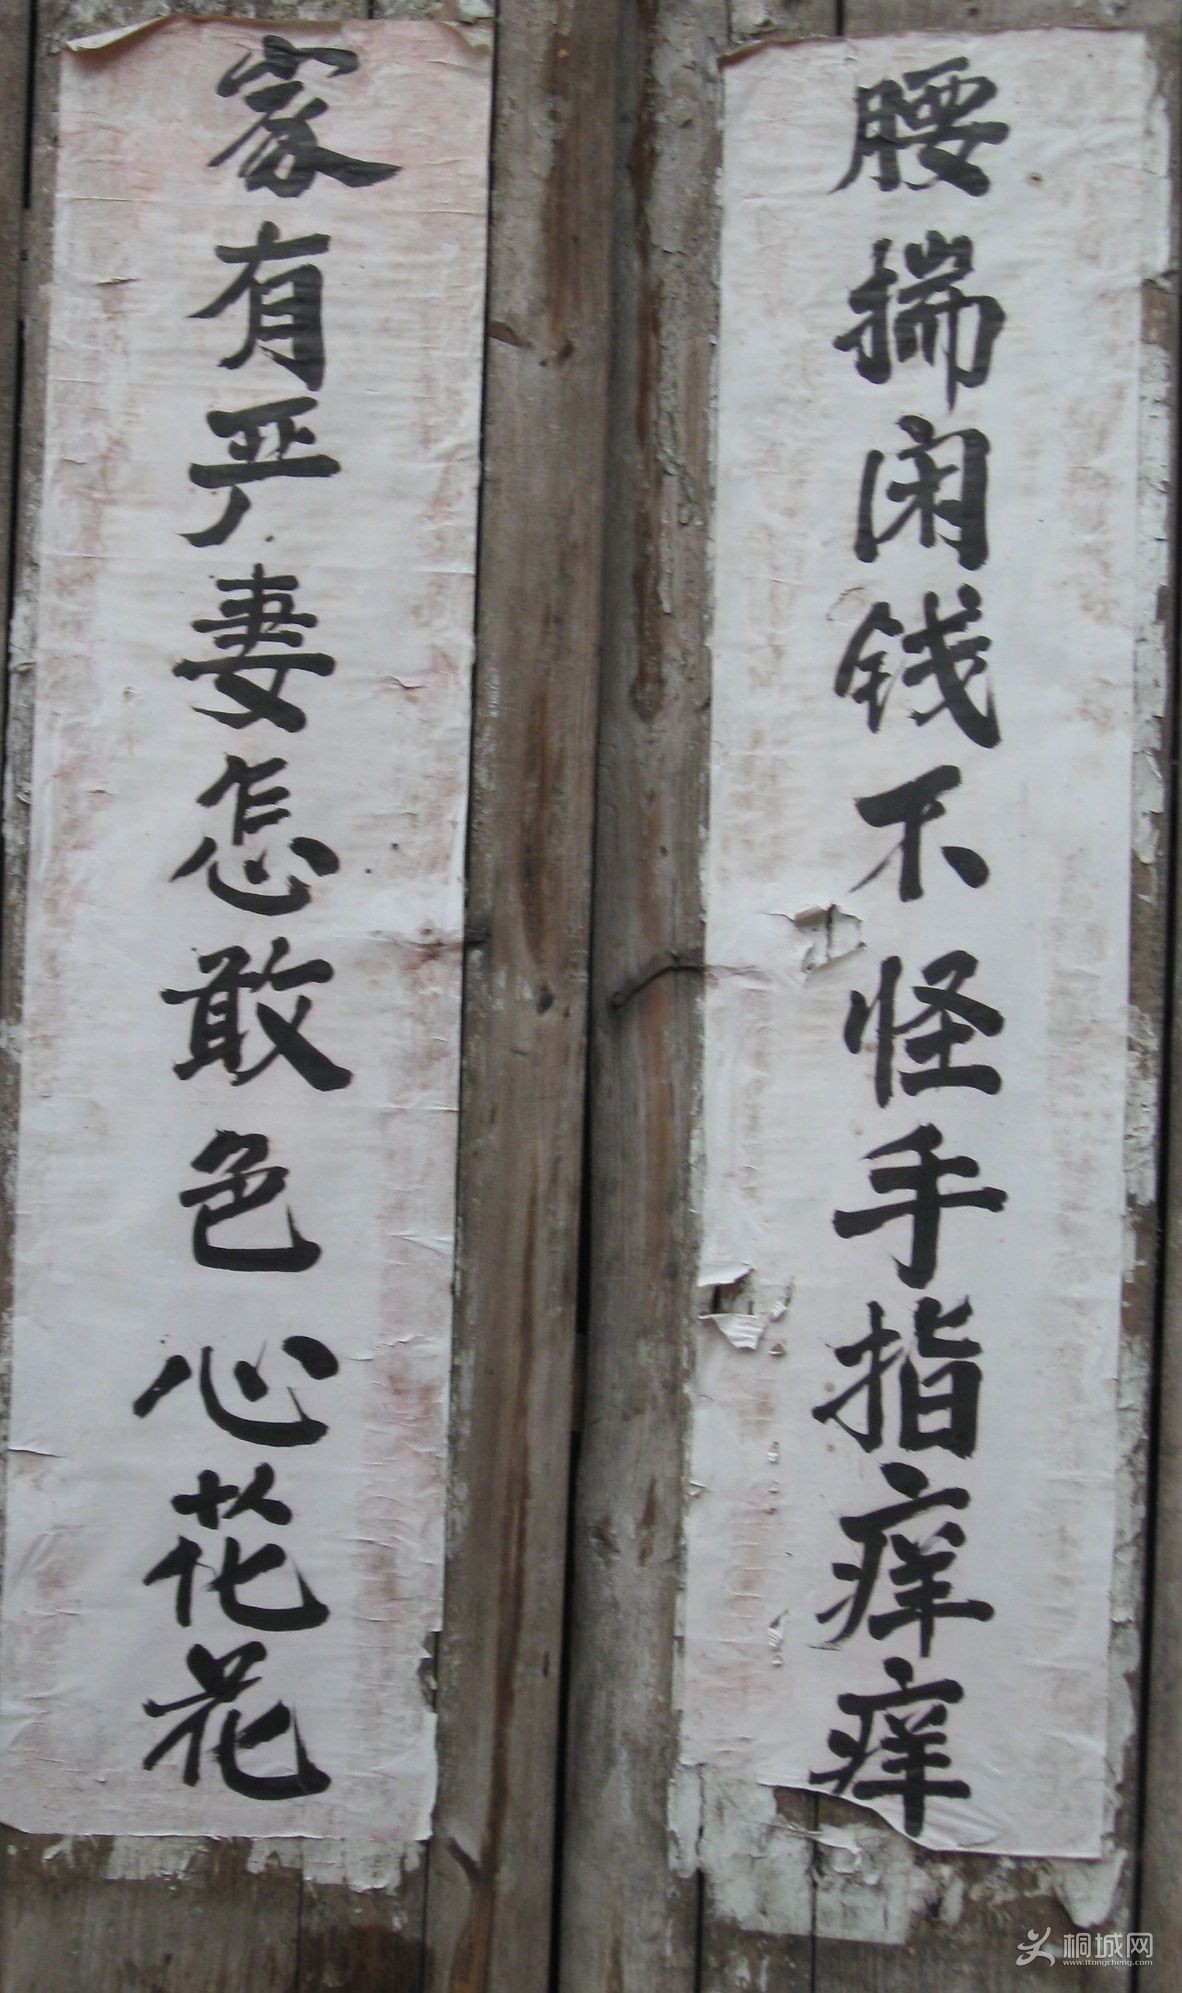 腰揣闲钱不怪手指痒痒
家有严妻怎敢色心花花
桐城网
www.itongcheng.com